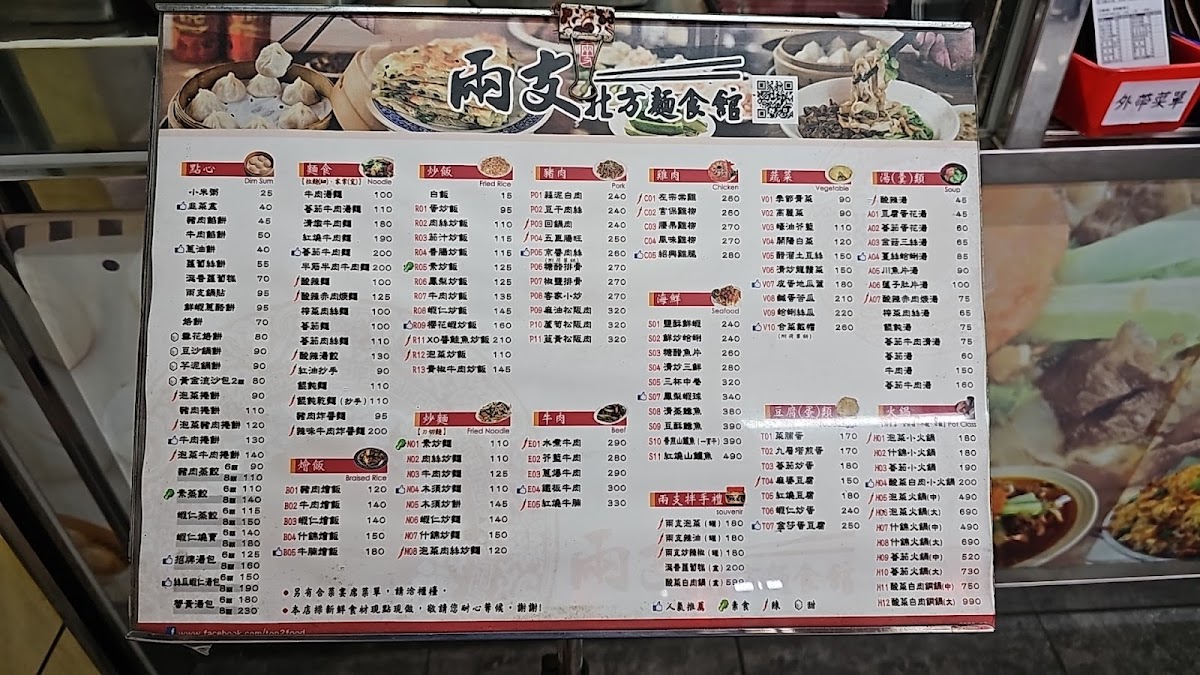 兩支北方麵食館
外帶菜單
點心
Dim Sum
小米粥 25
韭菜盒 40
豬肉餡餅 45
牛肉餡餅 50
蔥油餅 40
蘿蔔絲餅 55
港香蘿蔔糕 70
兩支鍋貼 95
鮮蝦蔥酪餅 95
烙餅 70
棗花烙餅 90
豆沙鍋餅 90
芋泥鍋餅 90
黃金流沙包2顆 80
泡菜捲餅 90
豬肉捲餅 110
泡菜豬肉捲餅 120
牛肉捲餅 130
泡菜牛肉捲餅 140
豬肉蒸餃 6顆 90
8顆 110
素蒸餃 6顆 110
8顆 140
蝦仁蒸餃 6顆 115
8顆 150
蝦仁燒賣 6顆 140
8顆 180
招牌湯包 6顆 125
8顆 160
絲瓜蝦仁湯包 6顆 150
8顆 190
蟹黃湯包 6顆 180
8顆 230
麵食
Noodle
牛肉湯麵 100
蕃茄牛肉湯麵 110
清燉牛肉麵 180
紅燒牛肉麵 190
蕃茄牛肉麵 200
半筋半肉牛肉麵 200
酸辣麵 100
酸辣赤肉煨麵 125
榨菜肉絲麵 105
蕃茄麵 100
蕃茄肉絲麵 110
酸辣湯餃 130
紅油抄手 90
餛飩麵 110
餛飩乾麵(抄手) 110
豬肉炸醬麵 95
辣味牛肉炸醬麵 200
燴飯
Braised Rice
B01 豬肉燴飯 120
B02 牛肉燴飯 140
B03 蝦仁燴飯 140
B04 什錦燴飯 150
B05 牛腩燴飯 180
炒飯
Fried Rice
白飯 15
R01 香炒飯 95
R02 肉絲炒飯 110
R03 茄汁炒飯 115
R04 香腸炒飯 115
R05 素炒飯 130
R06 鳳梨炒飯 125
R07 牛肉炒飯 135
R08 蝦仁炒飯 140
R09 櫻花蝦炒飯 160
R11 XO醬鮭魚炒飯 210
R12 泡菜炒飯 110
R13 青椒牛肉炒飯 145
炒麵
[刀切麵]
Fried Noodle
N01 素炒麵 110
N02 肉絲炒麵 110
N03 牛肉炒麵 125
N04 木須炒麵 110
N05 木須炒餅 140
N06 蝦仁炒麵 140
N07 什錦炒麵 145
N08 泡菜肉絲炒麵 120
豬肉
Pork
P01 蒜泥白肉 240
P02 豆干肉絲 240
P03 回鍋肉 240
P04 五更腸旺 250
P05 京醬肉絲 260
(附荷葉餅)
P06 糖醋排骨 270
P07 椒鹽排骨 270
P08 客家小炒 270
P09 麻油松阪肉 310
P10 蘆筍松阪肉 310
P11 韭黃松阪肉 310
牛肉
Beef
E01 水煮牛肉 290
E02 芥藍牛肉 280
E03 蔥爆牛肉 290
E04 鐵板牛肉 300
E05 紅燒牛腩 330
雞肉
Chicken
C01 左宗棠雞 260
C02 宮保雞柳 260
C03 腰果雞柳 270
C04 風味雞柳 270
C05 紹興雞腿 280
海鮮
Seafood
S01 鹽酥鮮蝦 240
S02 鮮炒蛤蜊 240
S03 糖醋魚片 260
S04 清炒三鮮 280
S05 三杯中卷 320
S07 鳳梨蝦球 340
S08 清蒸鱈魚 380
S09 豆酥鱈魚 380
S10 香煎山鱸魚(一夜干) 390
S11 紅燒山鱸魚 490
兩支拌手禮
souvenir
兩支泡菜(罐) 180
兩支辣油(罐) 180
兩支炒辣椒(罐) 180
港香蘿蔔糕(盒) 200
酸菜白肉鍋(盒) 590
蔬菜
Vegetable
V01 季節青菜 90
V02 高麗菜 90
V03 蠔油芥藍 110
V04 開陽白菜 120
V05 醋溜土豆絲 150
V06 清炒龍鬚菜 150
V07 皮香地瓜葉 180
V08 鹹香苦瓜 210
V09 蛤蜊絲瓜 220
V10 合菜戴帽 260
(附荷葉餅)
豆腐(蛋)類
T01 菜脯蛋 170
T02 九層塔煎蛋 170
T03 蕃茄炒蛋 180
T04 麻婆豆腐 150
T05 紅燒豆腐 180
T06 蝦仁炒蛋 240
T07 金莎香豆腐 250
湯(羹)類
Soup
酸辣湯 45
A01 豆腐香花湯 45
A02 蕃茄香花湯 60
A03 金菇三絲湯 65
A04 薑絲蛤蜊湯 85
A05 川魚片湯 90
A06 蓮子肚片湯 90
A07 酸辣赤肉煨湯 75
榨菜肉絲湯 65
餛飩湯 70
蕃茄牛肉清湯 75
蕃茄湯 60
牛肉湯 150
蕃茄牛肉湯 160
火鍋
H01 泡菜小火鍋 180
H02 什錦小火鍋 180
H03 蕃茄小火鍋 190
H04 酸菜白肉小火鍋 200
H05 泡菜火鍋(中) 490
H06 泡菜火鍋(大) 690
H07 什錦火鍋(中) 490
H08 什錦火鍋(大) 690
H09 蕃茄火鍋(中) 520
H10 蕃茄火鍋(大) 730
H11 酸菜白肉銅鍋(中) 750
H12 酸菜白肉銅鍋(大) 990
◆另有合菜宴席菜單,請洽櫃檯。
◆本店採新鮮食材現點現做,敬請您耐心等候,謝謝!
人氣推薦 素食 辣 甜
www.facebook.com/top2food